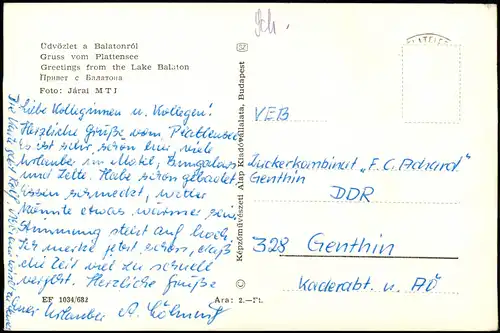 Üdvözlet a Balatonról
Gruss vom Plattensee
Greetings from the Lake Balaton
Привет с Балатона
Foto: Járai MTI
Liebe Kolleginnen u. Kollegen!
Herzliche Grüße vom Plattensee
Es ist sehr schön hier, viele
Urlauber im Motel, Bungalows
und Zelte. Habe schon gebadet,
Essen schmeckt, wetter
könnte etwas wärmer sein.
Stimmung steht auf hoch.
Ich merke jetzt schon, daß
die Zeit viel zu schnell
vergeht. Herzliche Grüße
EF 1034/682 Ára: 2.—Ft.
Urlauber
Képzőművészeti Alap Kiadóvállalata, Budapest
VEB
Zuckerkombinat „F. C. Achard"
Genthin
DDR
328 Genthin
Kaderabt. u. AÖ